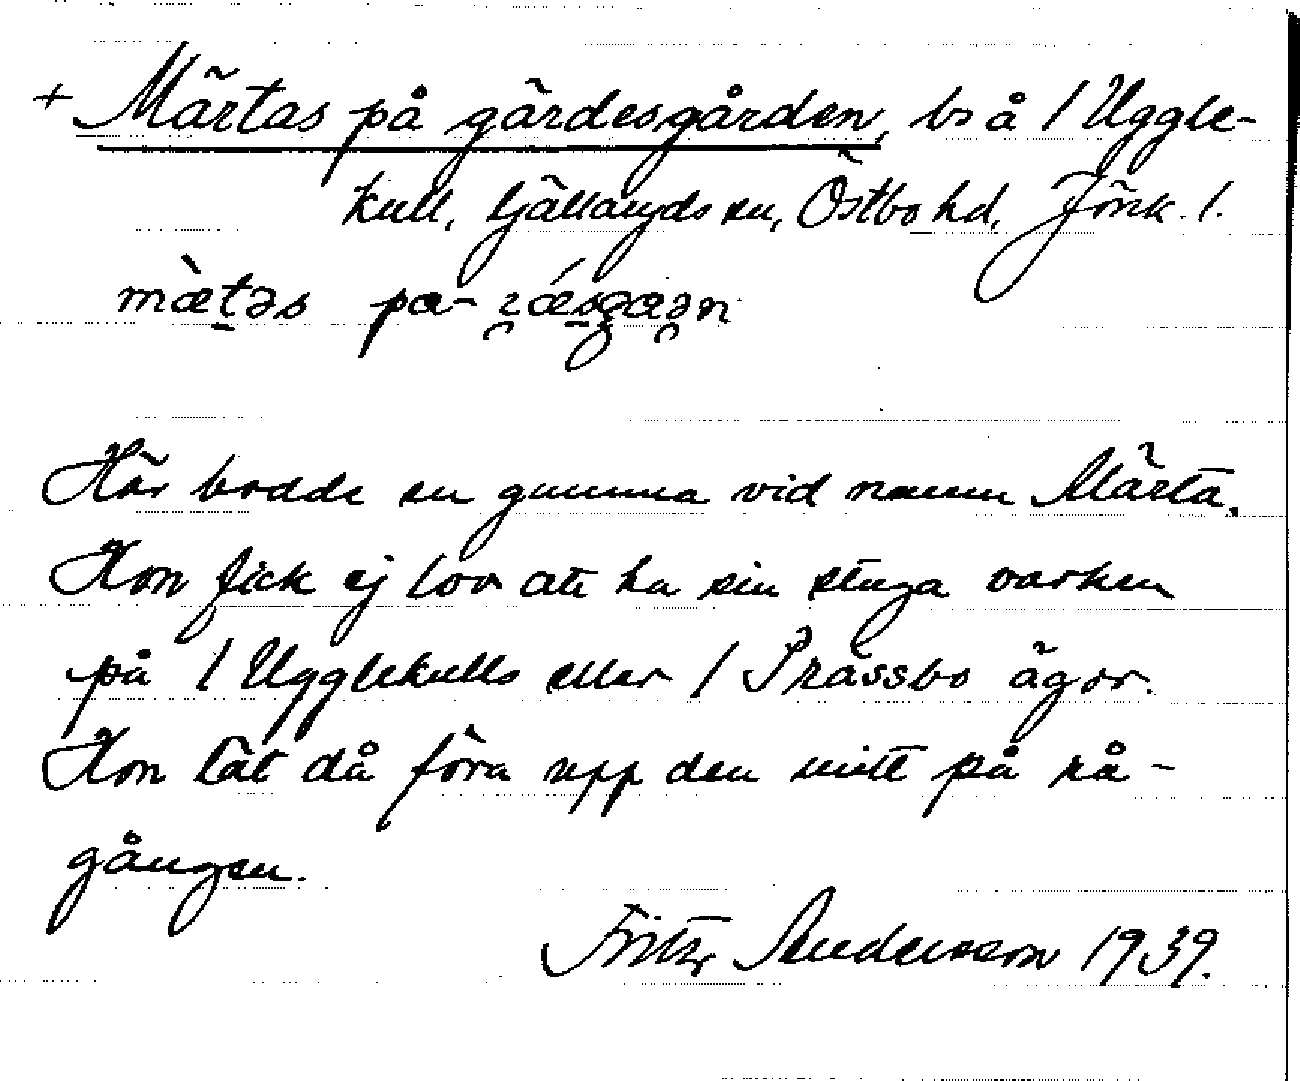 + Märtas på gärdesgården, bs å / Uggle-
kull, Gällaryds sn, Östbo hd, Jönk. l.
Här bodde en gumma vid namn Märta.
Hon fick ej lov att ha sin stuga varken
på / Ugglekulls eller / Prässbo ägor.
Hon lät då föra upp den mitt på rå-
gången.
Fritz Andersson 1939.